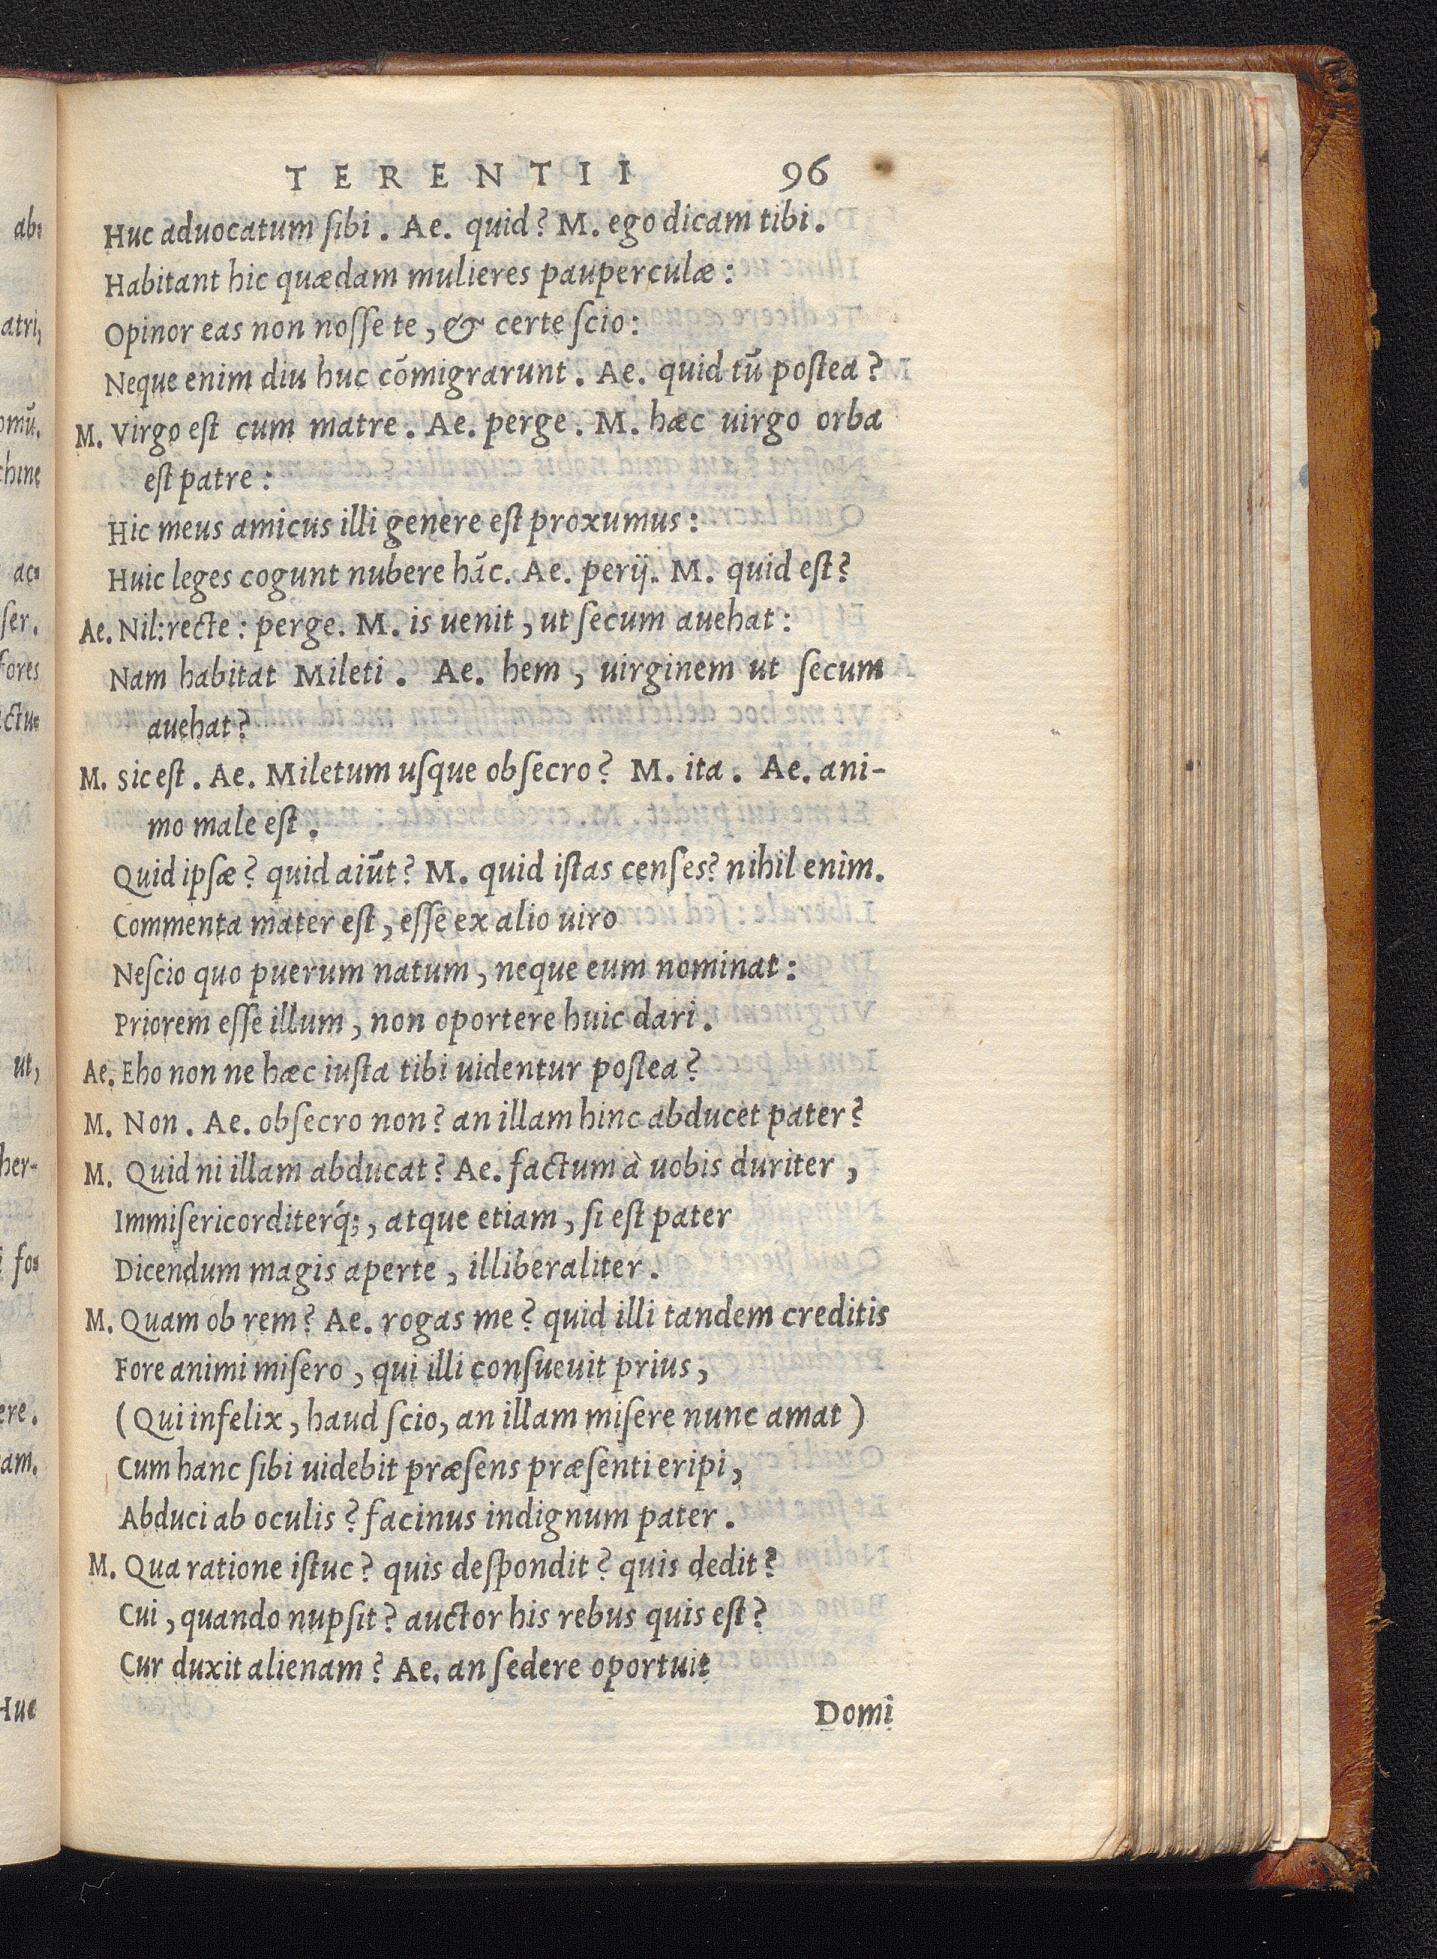 TERENTII 96
Huc aduocatum ſibi. Ae. quid? M. ego dicam tibi.
Habitant hic quædam mulieres pauperculæ:
Opinor eas non noſſe te, & certe ſcio:
Neque enim diu huc cōmigrarunt. Ae. quid tū poſtea?
M. Virgo eſt cum matre. Ae. perge. M. hæc uirgo orba
eſt patre:
Hic meus amicus illi genere eſt proxumus:
Huic leges cogunt nubere hāc. Ae. perij. M. quid eſt?
Ae. Nil: recte: perge. M. is uenit, ut ſecum auehat:
Nam habitat Mileti. Ae. hem, uirginem ut ſecum
auehat?
M. sic eſt. Ae. Miletum uſque obſecro? M. ita. Ae. ani-
mo male eſt.
Quid ipſæ? quid aiūt? M. quid iſtas cenſes? nihil enim.
Commenta mater eſt, eſſe ex alio uiro
Neſcio quo puerum natum, neque eum nominat:
Priorem eſſe illum, non oportere huic dari.
Ae. Eho non ne hæc iuſta tibi uidentur poſtea?
M. Non. Ae. obſecro non? an illam hinc abducet pater?
M. Quid ni illam abducat? Ae. factum à uobis duriter,
Immiſericorditerq́;, atque etiam, ſi eſt pater
Dicendum magis aperte, illiberaliter.
M. Quam ob rem? Ae. rogas me? quid illi tandem creditis
Fore animi miſero, qui illi conſueuit prius,
(Qui infelix, haud ſcio, an illam miſere nunc amat)
Cum hanc ſibi uidebit præſens præſenti eripi,
Abduci ab oculis? facinus indignum pater.
M. Qua ratione iſtuc? quis deſpondit? quis dedit?
Cui, quando nupſit? auctor his rebus quis eſt?
Cur duxit alienam? Ae. an ſedere oportuit
Domi